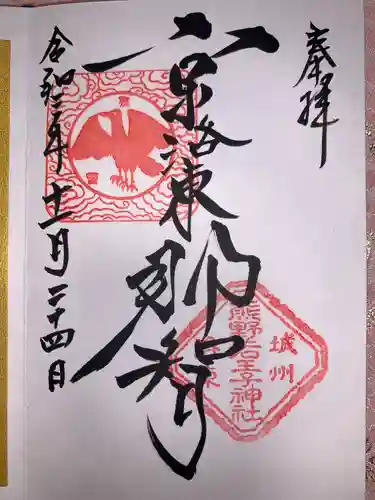 奉拝
京洛東
那智
城州
熊野若王子神社
令和三年十一月二十四日